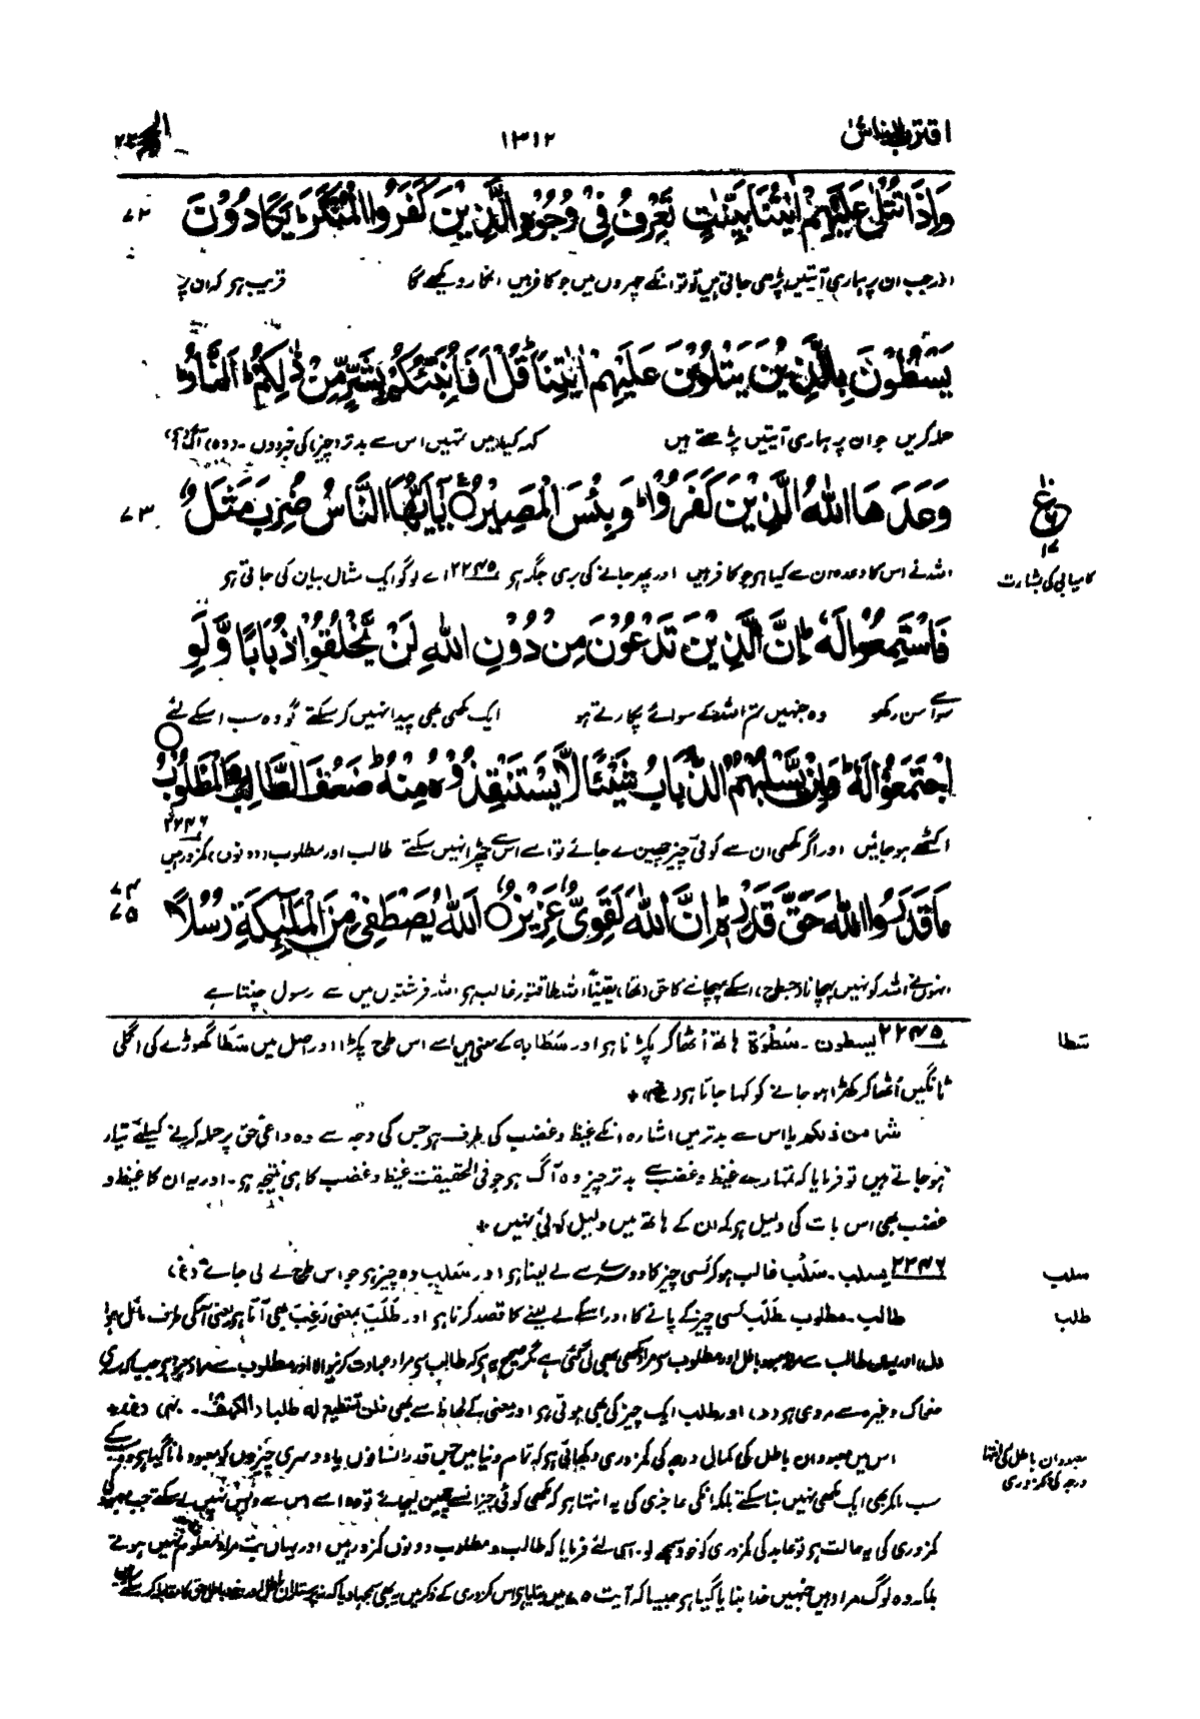 اقترب للناس ۱۳۱۲ الحج ۲۲
وَاِذَا تُتْلٰى عَلَيْهِمْ اٰيٰتُنَا بَيِّنٰتٍ تَعْرِفُ فِيْ وُجُوْهِ الَّذِيْنَ كَفَرُوا الْمُنْكَرَ ؕ يَكَادُوْنَ ۷۲
اور جب ان پر ہماری آیتیں پڑھی جاتی ہیں تو تو انکے چہروں میں جو کافر ہیں انکار دیکھے گا قریب ہو کہ ان پر
يَسْطُوْنَ بِالَّذِيْنَ يَتْلُوْنَ عَلَيْهِمْ اٰيٰتِنَا ؕ قُلْ اَفَاُنَبِّئُكُمْ بِشَرٍّ مِّنْ ذٰلِكُمْ ؕ اَلنَّارُ ؕ
حملہ کریں جو ان پر ہماری آیتیں پڑھتے ہیں کہہ کیا میں تمہیں اس سے بدتر (چیز) کی خبر دوں۔ (وہ) آگ ہے
وَعَدَهَا اللّٰهُ الَّذِيْنَ كَفَرُوْا ؕ وَبِئْسَ الْمَصِيْرُ ۝ يٰۤاَيُّهَا النَّاسُ ضُرِبَ مَثَلٌ ۷۳
ع
۱۷
اللہ نے اس کا وعدہ ان سے کیا ہو جو کافر ہیں اور پھر جانے کی بری جگہ ہو ۲۲۴۵ اے لوگو ایک مثال بیان کی جاتی ہو
کامیابی کی بشارت
فَاسْتَمِعُوْا لَهٗ ؕ اِنَّ الَّذِيْنَ تَدْعُوْنَ مِنْ دُوْنِ اللّٰهِ لَنْ يَّخْلُقُوْا ذُبَابًا وَّلَوِ
سو اسے سن رکھو وہ جنہیں تم اللہ کے سوائے پکارتے ہو ایک مکھی بھی پیدا نہیں کرسکتے گو وہ سب اسکے لئے
اجْتَمَعُوْا لَهٗ ؕ وَاِنْ يَّسْلُبْهُمُ الذُّبَابُ شَيْئًا لَّا يَسْتَنْقِذُوْهُ مِنْهُ ؕ ضَعُفَ الطَّالِبُ وَالْمَطْلُوْبُ ۝
اکٹھے ہو جائیں اور اگر مکھی ان سے کوئی چیز چھین لے جائے تو اسے اس سے چھڑا نہیں سکتے طالب اور مطلوب (دونوں) کمزور ہیں ۲۲۴۶
مَا قَدَرُوا اللّٰهَ حَقَّ قَدْرِهٖ ؕ اِنَّ اللّٰهَ لَقَوِيٌّ عَزِيْزٌ ۝ اَللّٰهُ يَصْطَفِيْ مِنَ الْمَلٰٓئِكَةِ رُسُلًا ۷۴ ۷۵
انہوں نے اللہ کو نہیں پہچانا (جسطرح) اسکے پہچاننے کا حق (تھا) یقیناً اللہ طاقتور غالب ہو اللہ فرشتوں میں سے رسول چنتا ہے
۲۲۴۵ یسطون۔ سَطْوَة ہاتھ اُٹھا کر پکڑنا ہو اور سَطَا بہ کے معنی ہیں اسے اس طرح پکڑا اور اصل میں سَطَا گھوڑے کی اگلی
سَطَا
ٹانگیں اُٹھا کر کھڑا ہو جانے کو کہا جاتا ہو (غ) *
شر من ذلکم یا اس سے بدتر میں اشارہ انکے غیظ و غضب کی طرف ہو جس کی وجہ سے وہ داعی حق پر حملہ کرنے کیلئے تیار
ہو جاتے ہیں تو فرمایا کہ تمہارے غیظ و غضب سے بدتر چیز وہ آگ ہو جو فی الحقیقت غیظ و غضب کا ہی نتیجہ ہو۔ اور یہ ان کا غیظ و
غضب بھی اس بات کی دلیل ہو کہ ان کے ہاتھ میں دلیل کوئی نہیں *
۲۲۴۶ یسلب۔ سَلْب غالب ہو کر کسی چیز کا دوسرے سے لے لینا ہو اور سَلَب وہ چیز ہو جو اس طرح لے لی جائے (غ)
سلب
طالب۔ مطلوب طَلَب کسی چیز کے پانے کا اور اسکے لے لینے کا قصد کرنا ہو اور طَلَبَ بمعنی رَغِبَ بھی آتا ہو یعنی اسکی طرف مائل ہوا
طلب
(ل) اور یہاں طالب سے مراد معبود باطل اور مطلوب سے مراد مکھی بھی لی گئی ہے مگر صحیح یہ ہو کہ طالب سے مراد عبادت کرنیوالا اور مطلوب سے مراد معبود
ضحاک وغیرہ سے مروی ہو (د) اور طلب ایک چیز کی بھی ہوتی ہو اور معنی کے لحاظ سے بھی فلن تستطیع له طلبا (الکہف)
اس میں معبودان باطل کی کمال درجہ کی کمزوری دکھائی ہو کہ تمام دنیا میں جس قدر انسانوں یا دوسری چیزوں کو معبود مانا گیا ہو وہ سب کے
معبودان باطل کی انتہا درجہ کی کمزوری
سب ملکر بھی ایک مکھی نہیں بنا سکتے بلکہ انکی عاجزی کی یہ انتہا ہو کہ مکھی کوئی چیز ان سے چھین لیجائے تو وہ اسے اس سے واپس نہیں لے سکتے جب معبود کی
کمزوری کی یہ حالت ہو تو عابد کی کمزوری کو خود سمجھ لو۔ اسی لئے فرمایا کہ طالب و مطلوب دونوں کمزور ہیں اور یہاں بت مراد معلوم نہیں ہوتے
بلکہ وہ لوگ مراد ہیں جنہیں خدا بنایا گیا ہو جیسا کہ آیت ۷۵ میں بتایا ہو اس کمزوری کے ذکر میں یہ بھی سمجھا دیا کہ